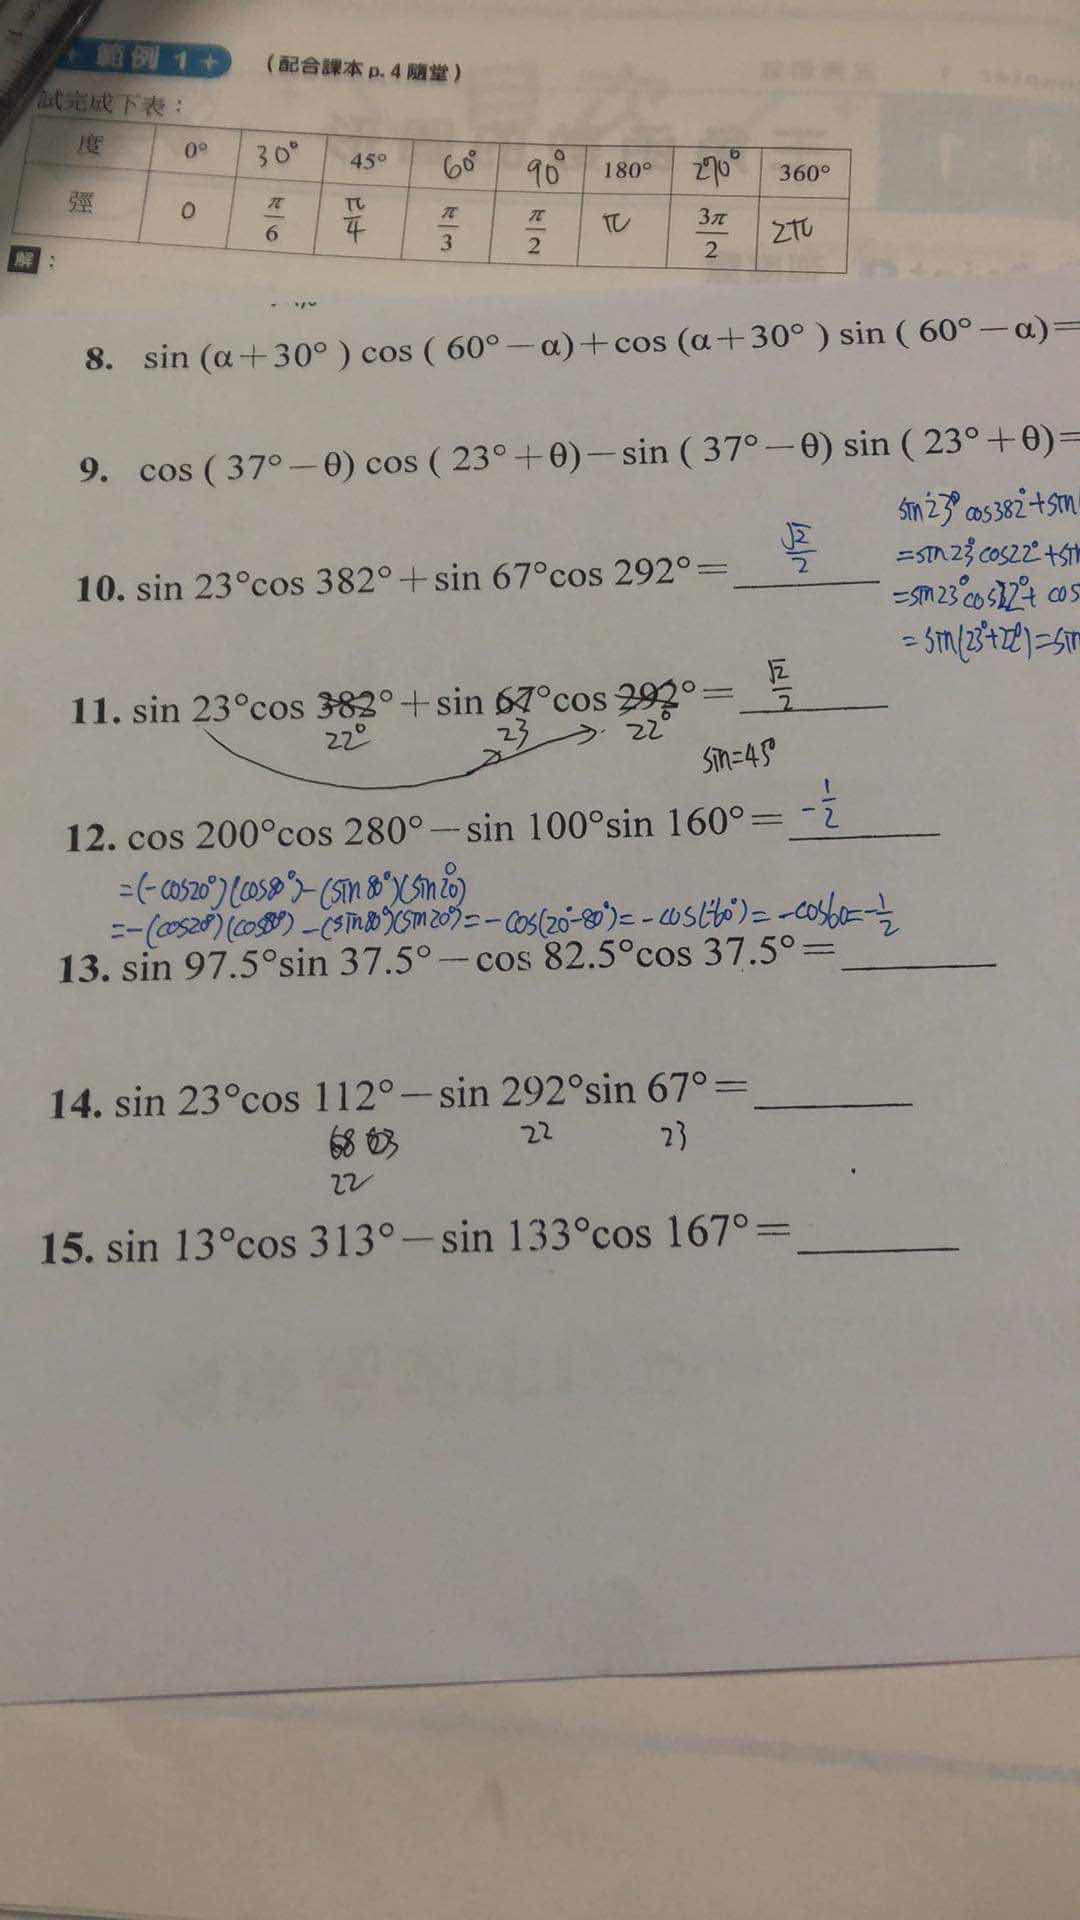 範例 1 + (配合課本 p. 4 隨堂)
試完成下表：
度 0° 30° 45° 60° 90° 180° 270° 360°
弳 0 π/6 π/4 π/3 π/2 π 3π/2 2π
解：
8. sin (α＋30° ) cos ( 60°－α)＋cos (α＋30° ) sin ( 60°－α)＝
9. cos ( 37°－θ) cos ( 23°＋θ)－sin ( 37°－θ) sin ( 23°＋θ)＝
sin23° cos382°+sin
10. sin 23°cos 382°＋sin 67°cos 292°＝ √2/2
=sin23°cos22°+sin
=sin23°cos22°+ cos
=sin(23°+22°)=sin
11. sin 23°cos 382°＋sin 67°cos 292°＝ √2/2
22° 23 22°
sin=45°
12. cos 200°cos 280°－sin 100°sin 160°＝ -1/2
=(-cos20°)(cos80°)-(sin80°)(sin20°)
=-(cos20°)(cos80°)-(sin80°)(sin20°)=-cos(20°-80°)=-cos(-60°)=-cos60=-1/2
13. sin 97.5°sin 37.5°－cos 82.5°cos 37.5°＝
14. sin 23°cos 112°－sin 292°sin 67°＝
68 22 23
22
15. sin 13°cos 313°－sin 133°cos 167°＝